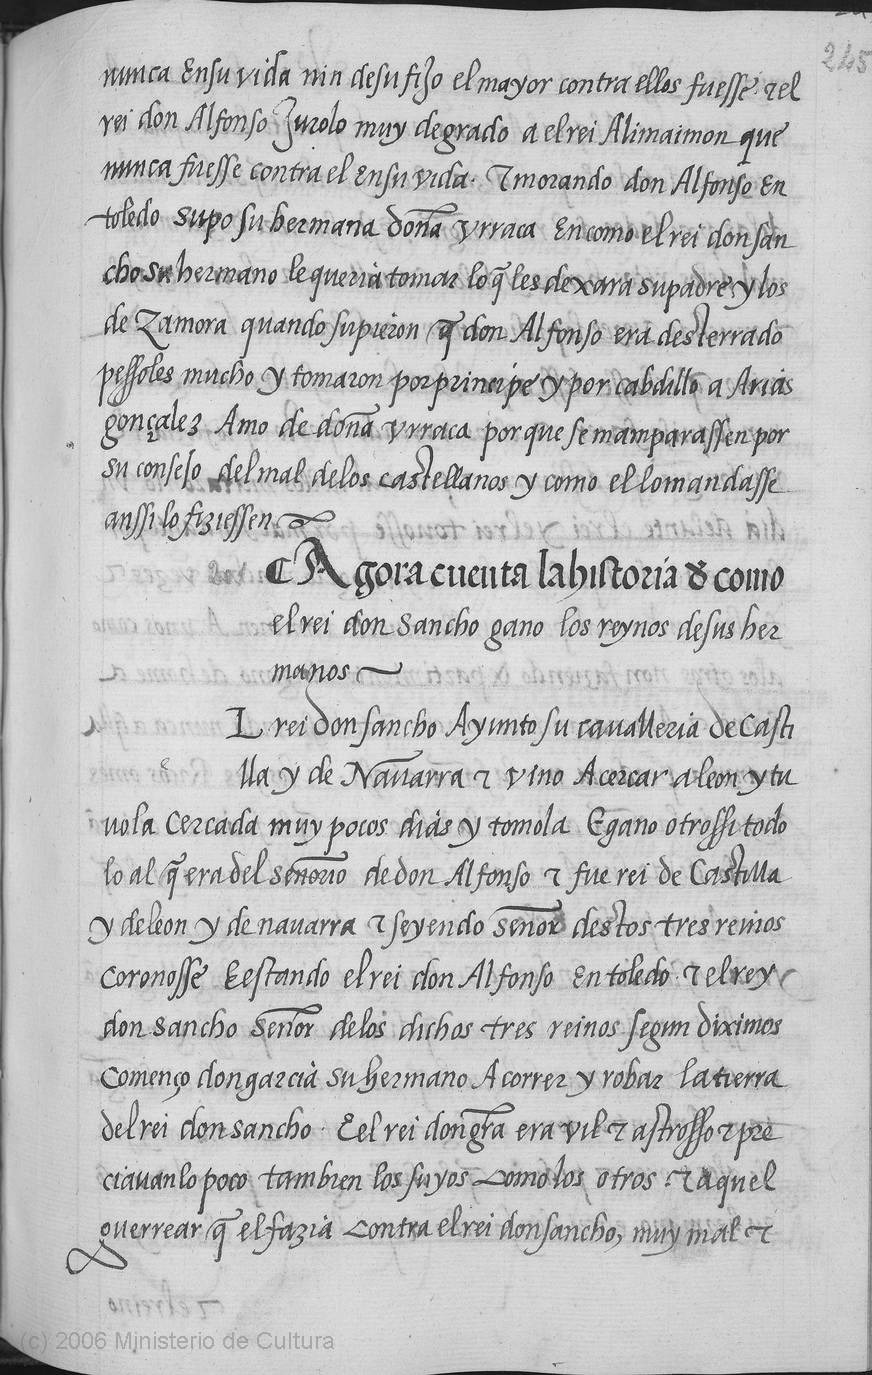 245
nunca Ensu vida nin desu fijo el mayor contra ellos fuesse. ⁊ el
rei don Alfonso Jurolo muy de grado a el rei Alimaimon que
nunca fuesse contra el Ensu vida. ⁊ morando don Alfonso En
toledo supo su hermana doña Vrraca En como el rei don san
cho su hermano le queria tomar lo q̃ les dexara su padre y los
de Zamora quando supieron q̃ don Alfonso era desterrado
pessoles mucho y tomaron por principe y por cabdillo a Arias
gonçalez Amo de doña vrraca por que se mamparassen por
su consejo del mal delos castellanos y como el lo mandasse
anssi lo fiziessen
¶ Agora cuenta la historia de como
el rei don Sancho gano los reynos de sus her
manos
L rei don sancho Ayunto su cavalleria de Casti
e lla y de Navarra ⁊ vino A cercar a leon y tu
uola cercada muy pocos dias y tomola E gano otrossi todo
lo al q̃ era del señorio de don Alfonso ⁊ fue rei de Castilla
y de leon y de navarra ⁊ seyendo señor destos tres reinos
coronosse E estando el rei don Alfonso En toledo. ⁊ el rey
don Sancho señor delos dichos tres reinos segun diximos
començo don garcia su hermano A correr y robar la tierra
del rei don sancho. E el rei don gr̃a era vil ⁊ astrosso ⁊ pre
ciauanlo poco tambien los suyos como los otros. ⁊ aquel
guerrear q̃ el fazia contra el rei don sancho, muy mal ⁊
(c) 2006 Ministerio de Cultura